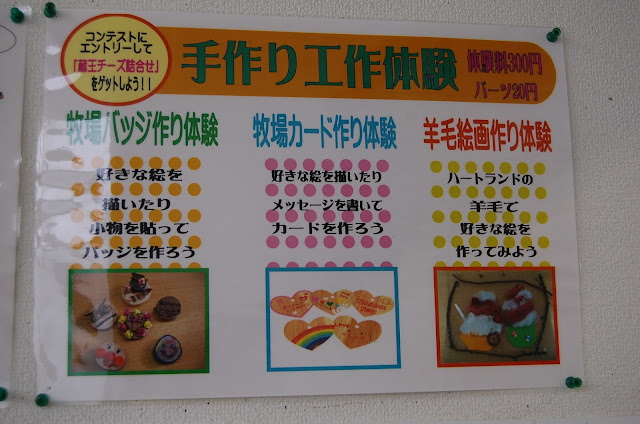 コンテストに
エントリーして
「蔵王チーズ詰合せ」
をゲットしよう！！
手作り工作体験
体験料300円
パーツ20円
牧場バッジ作り体験
好きな絵を
描いたり
小物を貼って
バッジを作ろう
牧場カード作り体験
好きな絵を描いたり
メッセージを書いて
カードを作ろう
羊毛絵画作り体験
ハートランドの
羊毛で
好きな絵を
作ってみよう